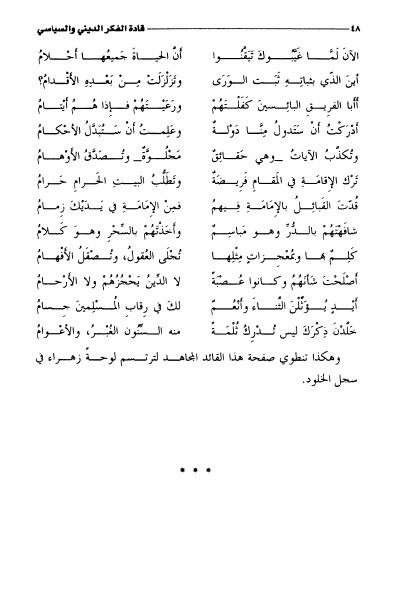 ٤٨ قادة الفكر الديني والسياسي
الآن لَمَّا غَيَّبُوكَ تَيَقَّنُوا أنَّ الحياةَ جَميعُها أحْلامُ
أينَ الذي بثباتِهِ ثَبَتَ الوَرَى وتَزَلْزَلَتْ مِنْ بَعْدِهِ الأقْدامُ؟
أأبا الفريقِ البائِسينَ كَفَلْتَهُمْ ورَعَيْتَهُمْ فإذا هُمُ أيْتامُ
أدْرَكْتُ أنْ سَتَدولُ مِنَّا دَوْلَةٌ وعَلِمتُ أنْ سَتُبَدَّلُ الأحْكامُ
وتُكذَّبُ الآياتُ _وهي حَقائِقٌ مَجْلُوَّةٌ_ وتُصَدَّقُ الأوْهامُ
تَرْكُ الإقامَةِ في المَقامِ فَريضَةٌ وتَطَلُّبُ البيتِ الحَرامِ حَرامُ
قُدْتَ القَبائِلَ بالإمامَةِ فِيهِمُ فمِنْ الإمامَةِ في يَدَيْكَ زِمامُ
شافَهْتَهُمْ بالدُّرِّ وهو مَباسِمٌ وأخَذْتَهُمْ بالسِّحْرِ وهْوَ كَلامُ
كَلِمٌ هَا وبمُعْجِزاتٍ مِثلِها تُجْلَى العُقولُ، وتُصْقَلُ الأفْهامُ
أصْلَحْتَ شَأنَهُمُ وكانوا عُصْبَةً لا الدِّينُ يَحْجُزُهُمْ ولا الأرْحامُ
أيْدٍ يُؤثِّلْنَ الثَّناءَ وأنْعُمٌ لكَ في رِقابِ المُسْلِمينَ جِسامُ
خَلَّدْنَ ذِكرَكَ ليس تُدْرِكُ ثُلْمَةً منه السِّنُونَ الغُبْرُ، والأعْوامُ
وهكذا تنطوي صفحة هذا القائد المجاهد لترتسم لوحةً زهراء في
سجل الخلود.
* * *